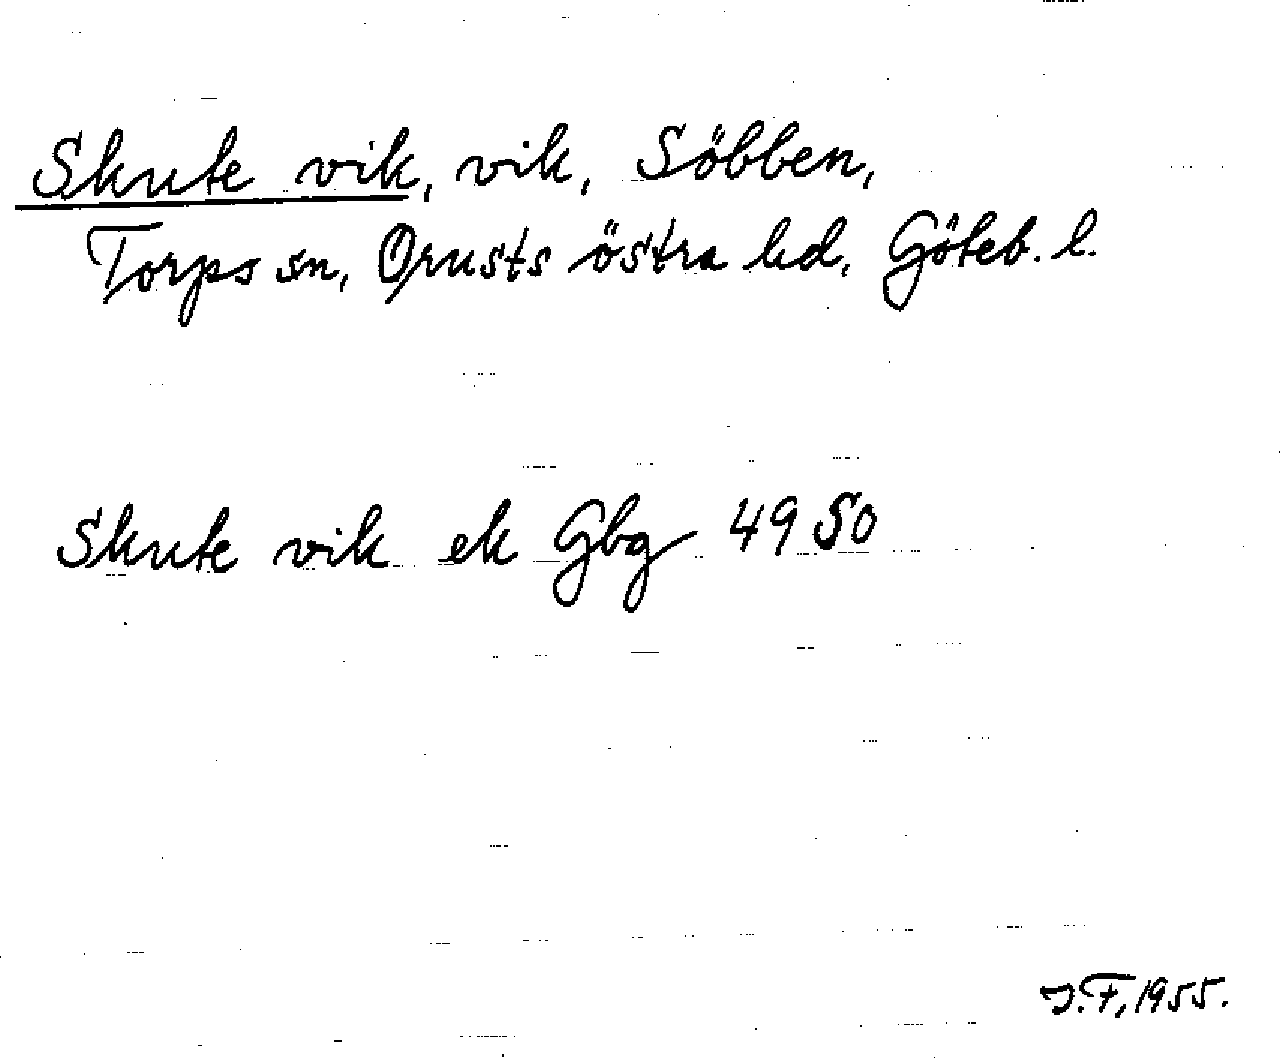 Skute vik, vik, Söbben,
Torps sn, Orusts östra hd, Göteb. l.
Skute vik ek Gbg 49 SO
J.F, 1955.